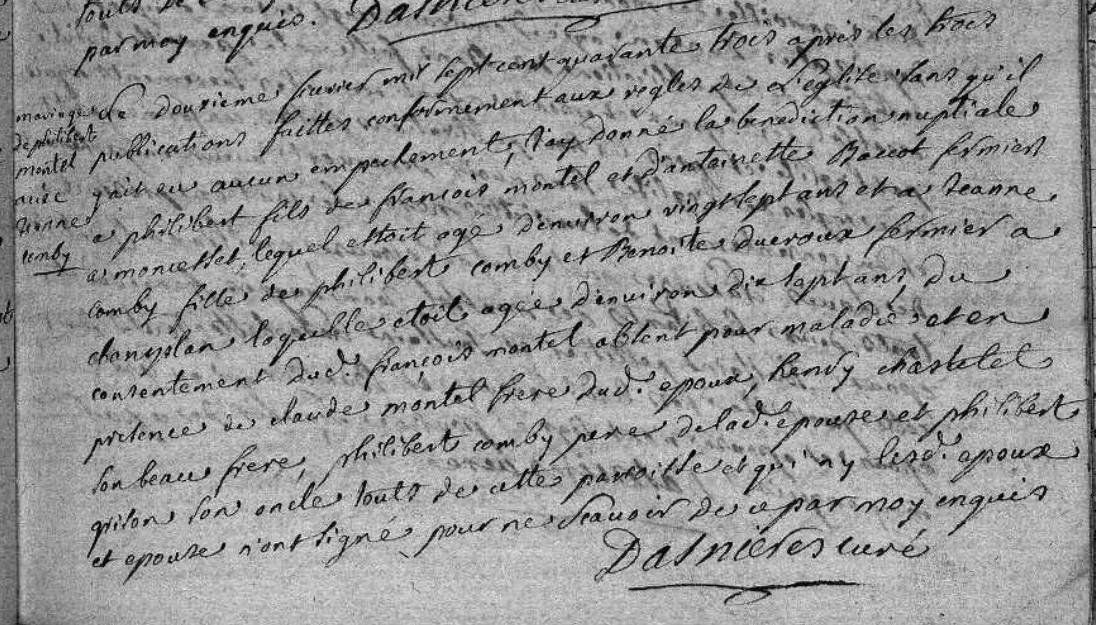 touts de
par moy enquis. Dasnieres curé
mariage
de philibert
montel
avec
Jeanne
comby
Le douzieme fevrier mil sept cent quarante trois apres les trois
publications faittes conformement aux regles de L'eglise sans qu'il
y ait eu aucun empechement, J'ay donné la benediction nuptiale
a philibert fils de francois montel et d'antoinette Baccot fermiers
a moncettet, lequel ettoit agé d'environ vingt sept ans et a Jeanne
comby fille de philibert comby et Benoite ducroux fermier a
laquelle etoit agée d'environ dix sept ans, du
consentement dud. francois montel absent pour maladie et en
presence de claude montel frere dud. epoux, henry chastelet
son beau frere, philibert comby pere de lad. epouse et philibert
grison son oncle touts de cette paroisse et qui ny lesd. epoux
et epouze n'ont signé pour ne scavoir de ce par moy enquis
Dasnieres curé